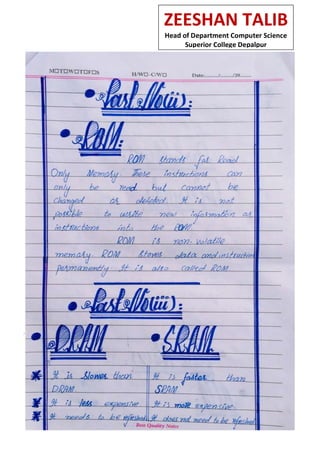 ZEESHAN TALIB
Head of Department Computer Science
Superior College Depalpur
MOTOWOTOFOS H/WO-C/WO Date:....../....../20......
Part No(ii):
ROM:
ROM stands for Read
Only Memory These instructions can
only be read but cannot be
changed or deleted. It is not
possible to write new information or
instructions into the ROM
ROM is non-volatile
memory ROM stores data and instruction
permanently It is also called ROM
Part No(iii):
DRAM SRAM
It is slower than It is faster than
DRAM SRAM
It is less expensive It is more expensive
It needs to be refreshed It does not need to be refreshed
Best Quality Notes